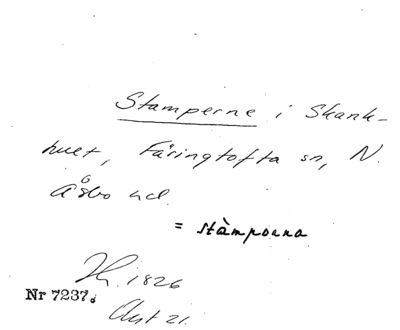 Stamperne i Skank-
huet, Färingtofta sn, N.
Åsbo hd.
= stàmporna
1826
Nr 7237.
21.